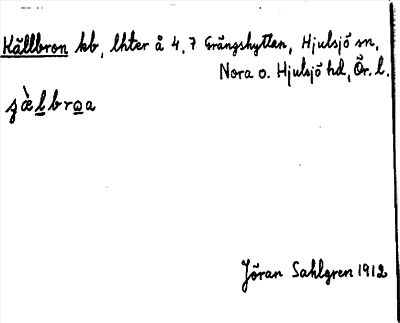 Källbron kb, lhter å 4, 7 Grängshyttan, Hjulsjö sn,
Nora o. Hjulsjö hd, Ör. l.
ʒæ̀l̲bro̲a
Jöran Sahlgren 1912